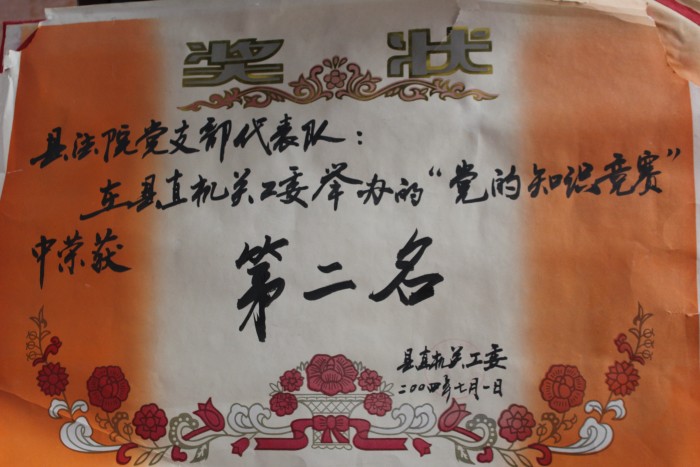 奖状
县法院党支部代表队：
在县直机关工委举办的“党的知识竞赛”
中荣获
第二名
县直机关工委
二〇〇四年七月一日